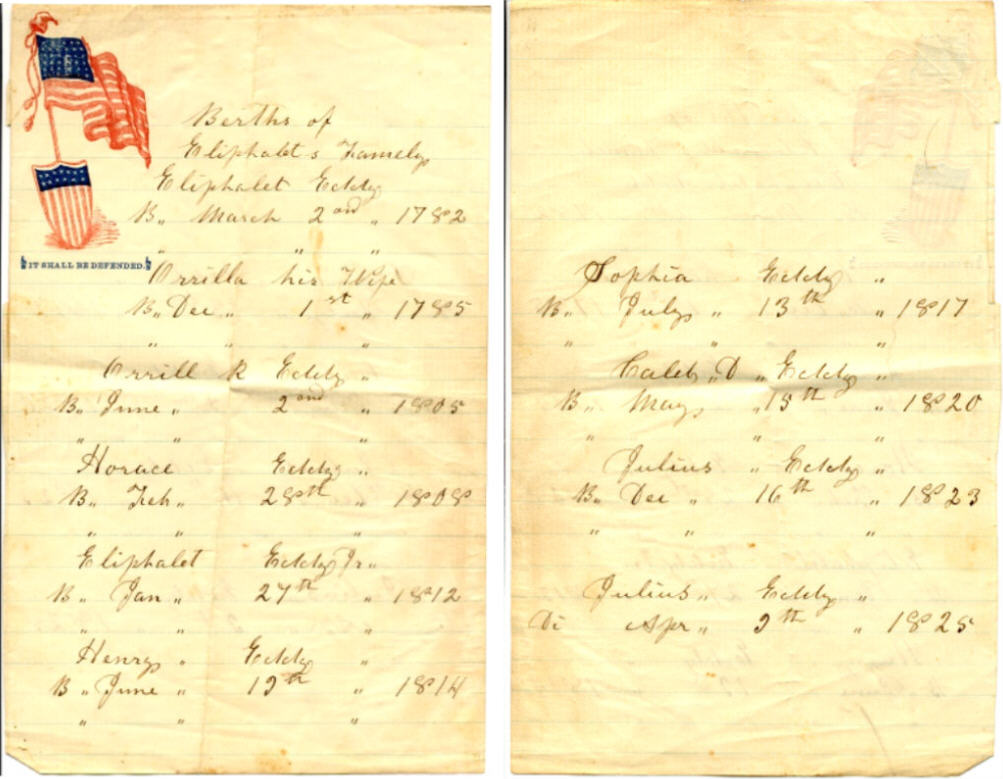 Berths of
Eliphalet s Famely
Eliphalet Eddy
B,, March 2ond ,, 1782
,, ,, ,,
IT SHALL BE DEFENDED.
Orrilla his Wife
B,, Dec ,, 1st ,, 1785
,, ,, ,,
Orrill R Eddy ,,
B,, June ,, 2ond ,, 1805
,, ,, ,,
Horace Eddy ,,
B,, Feb ,, 28th ,, 1808
,, ,, ,,
Eliphalet Eddy Jr,,
B,, Jan ,, 27th ,, 1812
,, ,, ,,
Henry ,, Eddy ,,
B ,, June ,, 19th ,, 1814
,, ,, ,,
Sophia Eddy ,,
B,, July ,, 13th ,, 1817
,, ,, ,,
Caleb ,, D ,, Eddy ,,
B,, May ,, 15th ,, 1820
,, ,, ,,
Julius ,, Eddy ,,
B,, Dec ,, 16th ,, 1823
,, ,, ,,
Julius ,, Eddy ,,
Di Apr ,, 9th ,, 1825